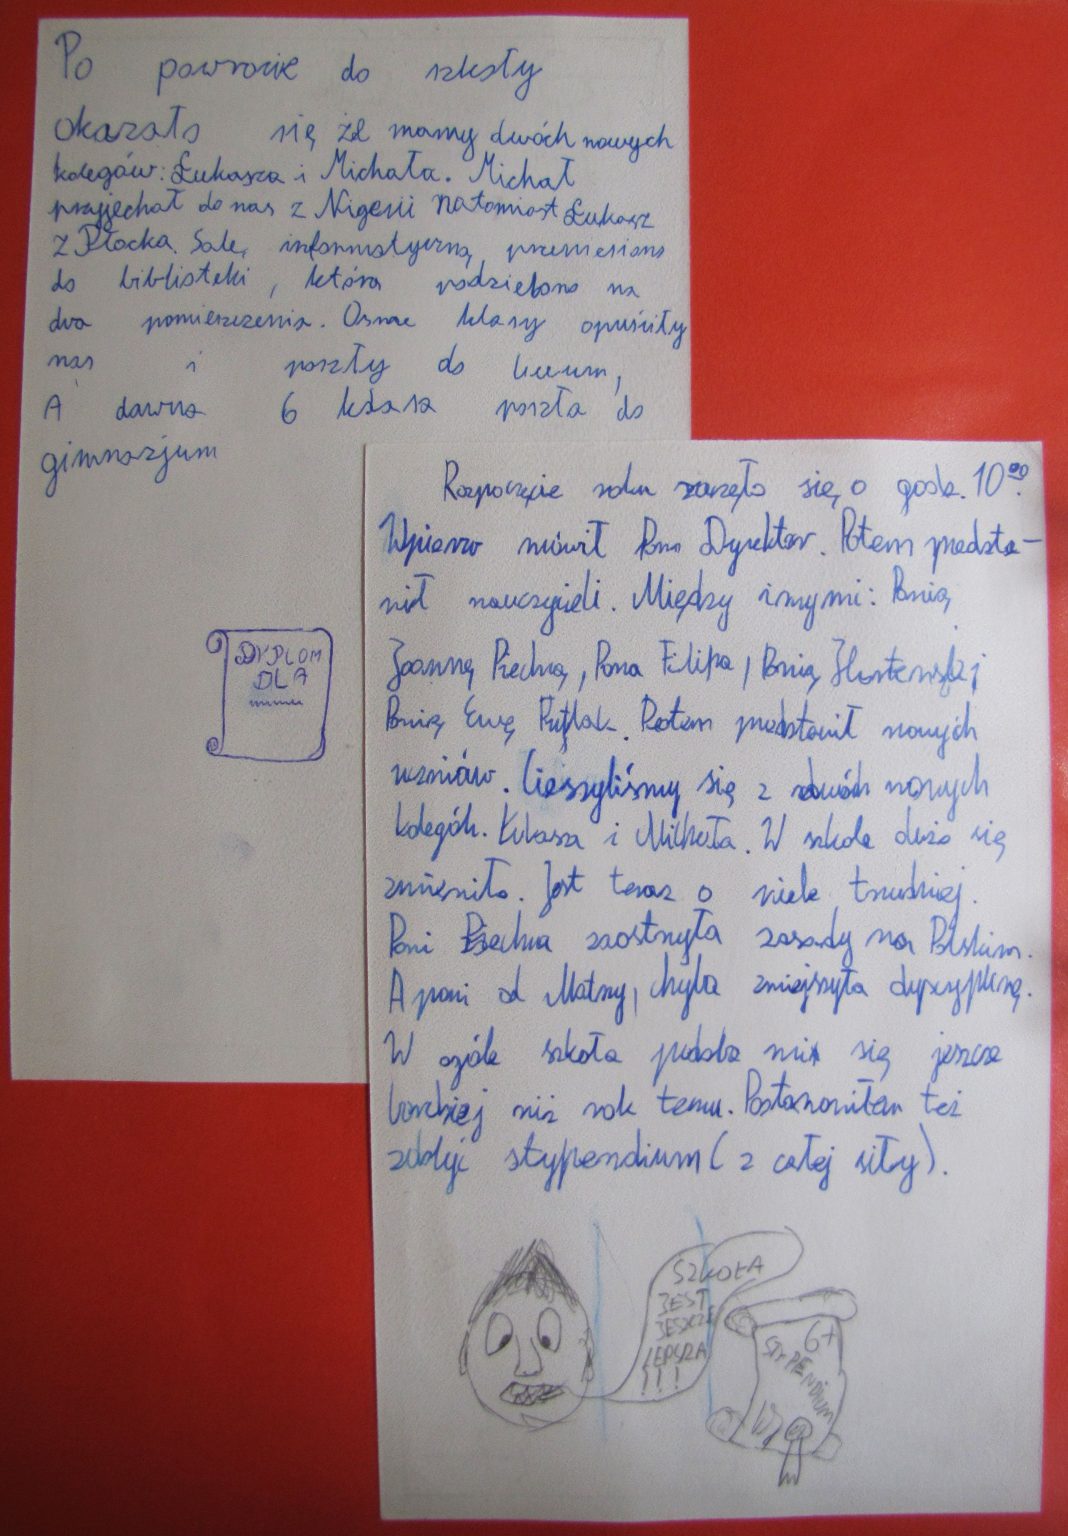 Po powrocie do szkoły
okazało się że mamy dwóch nowych
kolegów: Łukasza i Michała. Michał
przyjechał do nas z Nigerii natomiast Łukasz
z Płocka. Salę informatyczną przeniesiono
do biblioteki, którą podzielono na
dwa pomieszczenia. Osme klasy opuściły
nas i poszły do liceum,
A dawna 6 klasa poszła do
gimnazjum
DYPLOM
DLA
Rozpoczęcie roku zaczęło się o godz. 10⁰⁰.
Wpierw mówił Pan Dyrektor. Potem przedsta-
wił nauczycieli. Między innymi: Panią
Joannę Piechną, Pana Filipa, Panią
Panią Ewę Potem przedstawił nowych
uczniów. Cieszyliśmy się z dwóch nowych
kolegów. Łukasza i Michała. W szkole dużo się
zmieniło. Jest teraz o wiele trudniej.
Pani Piechna zaostrzyła zasady na Polskim.
A pani od Matmy, chyba zmiejszyła dyscyplinę.
W ogóle szkoła podoba mi się jeszcze
bardziej niż rok temu. Postanowiłem też
zdobyć stypendium (z całej siły).
SZKOŁA
JEST
JESZCZE
LEPSZA
!!!
6+
STYPENDIUM